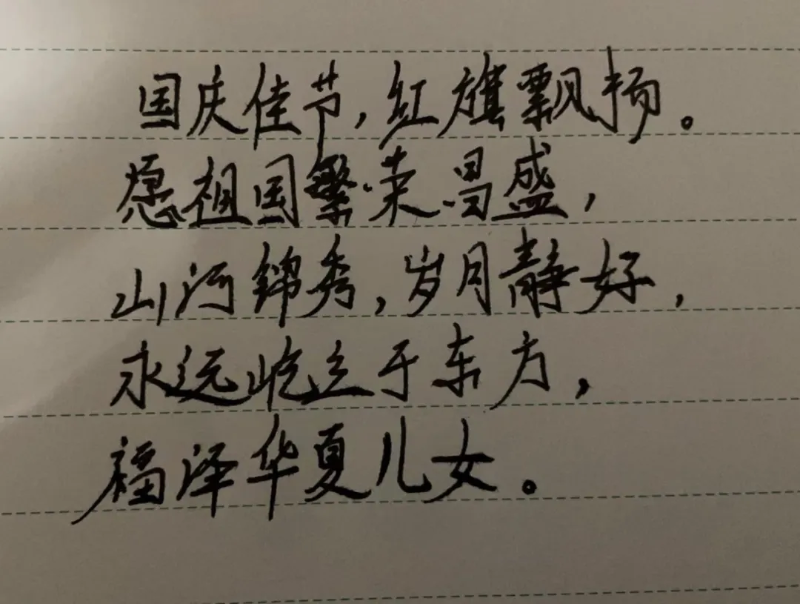 国庆佳节,红旗飘扬。
愿祖国繁荣昌盛,
山河锦秀,岁月静好,
永远屹立于东方,
福泽华夏儿女。